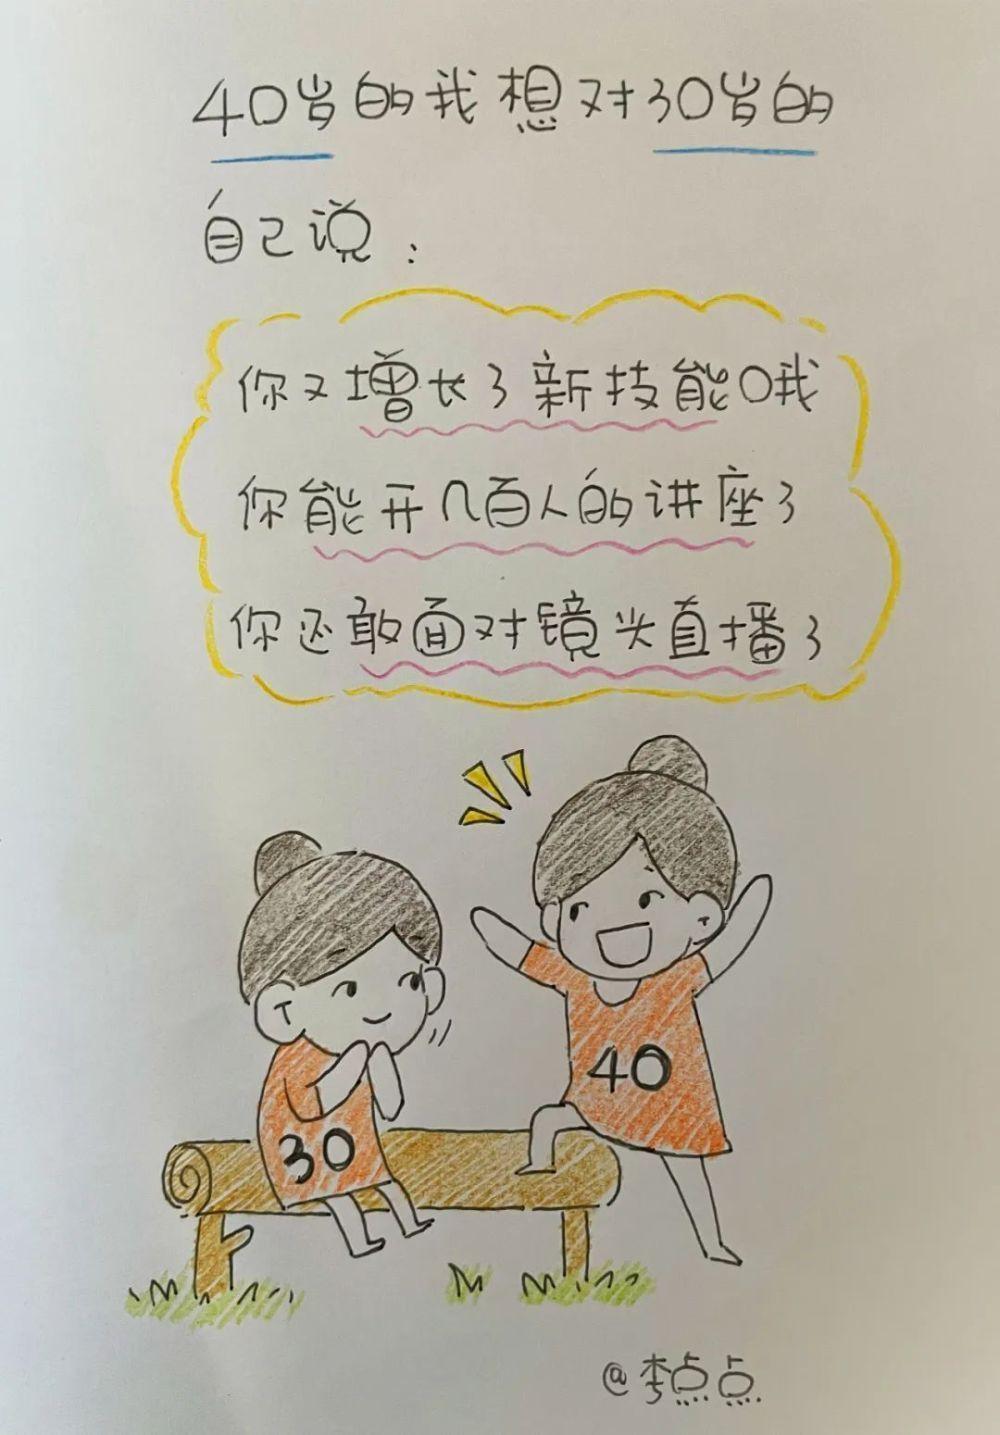 40岁的我想对30岁的
自己说：
你又增长了新技能哦
你能开几百人的讲座了
你还敢面对镜头直播了
30
40
@李点点